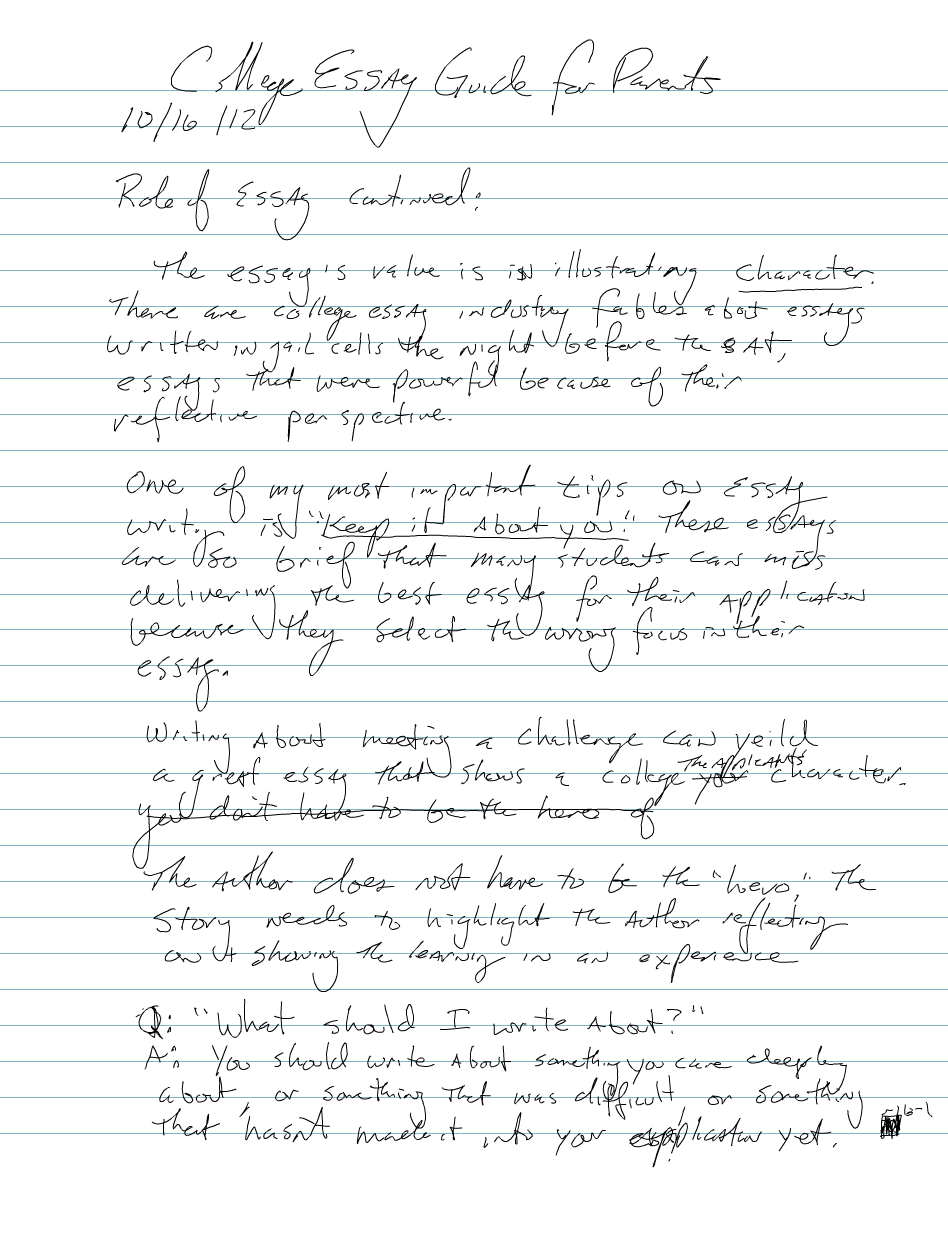 College Essay Guide for Parents
10/16/12
Role of Essay continued:
The essay's value is in illustrating character.
There are college essay industry fables about essays
written in jail cells the night before the SAT,
essays that were powerful because of their
reflective perspective.
One of my most important tips on Essay
writ. is "Keep it About you!" These essays
are so brief that many students can miss
delivering the best essay for their application
because they select the wrong focus in their
essay.
Writing about meeting a challenge can yeild
The Applicants
a great essay that shows a college your character.
you don't have to be the hero of
The Author does not have to be the "hero," The
Story needs to highlight the Author reflecting
on showing the learning in an experience
Q: "What should I write About?"
A: You should write about something you care deeply
about, or something that was difficult or something
that hasn't made it into your application yet.